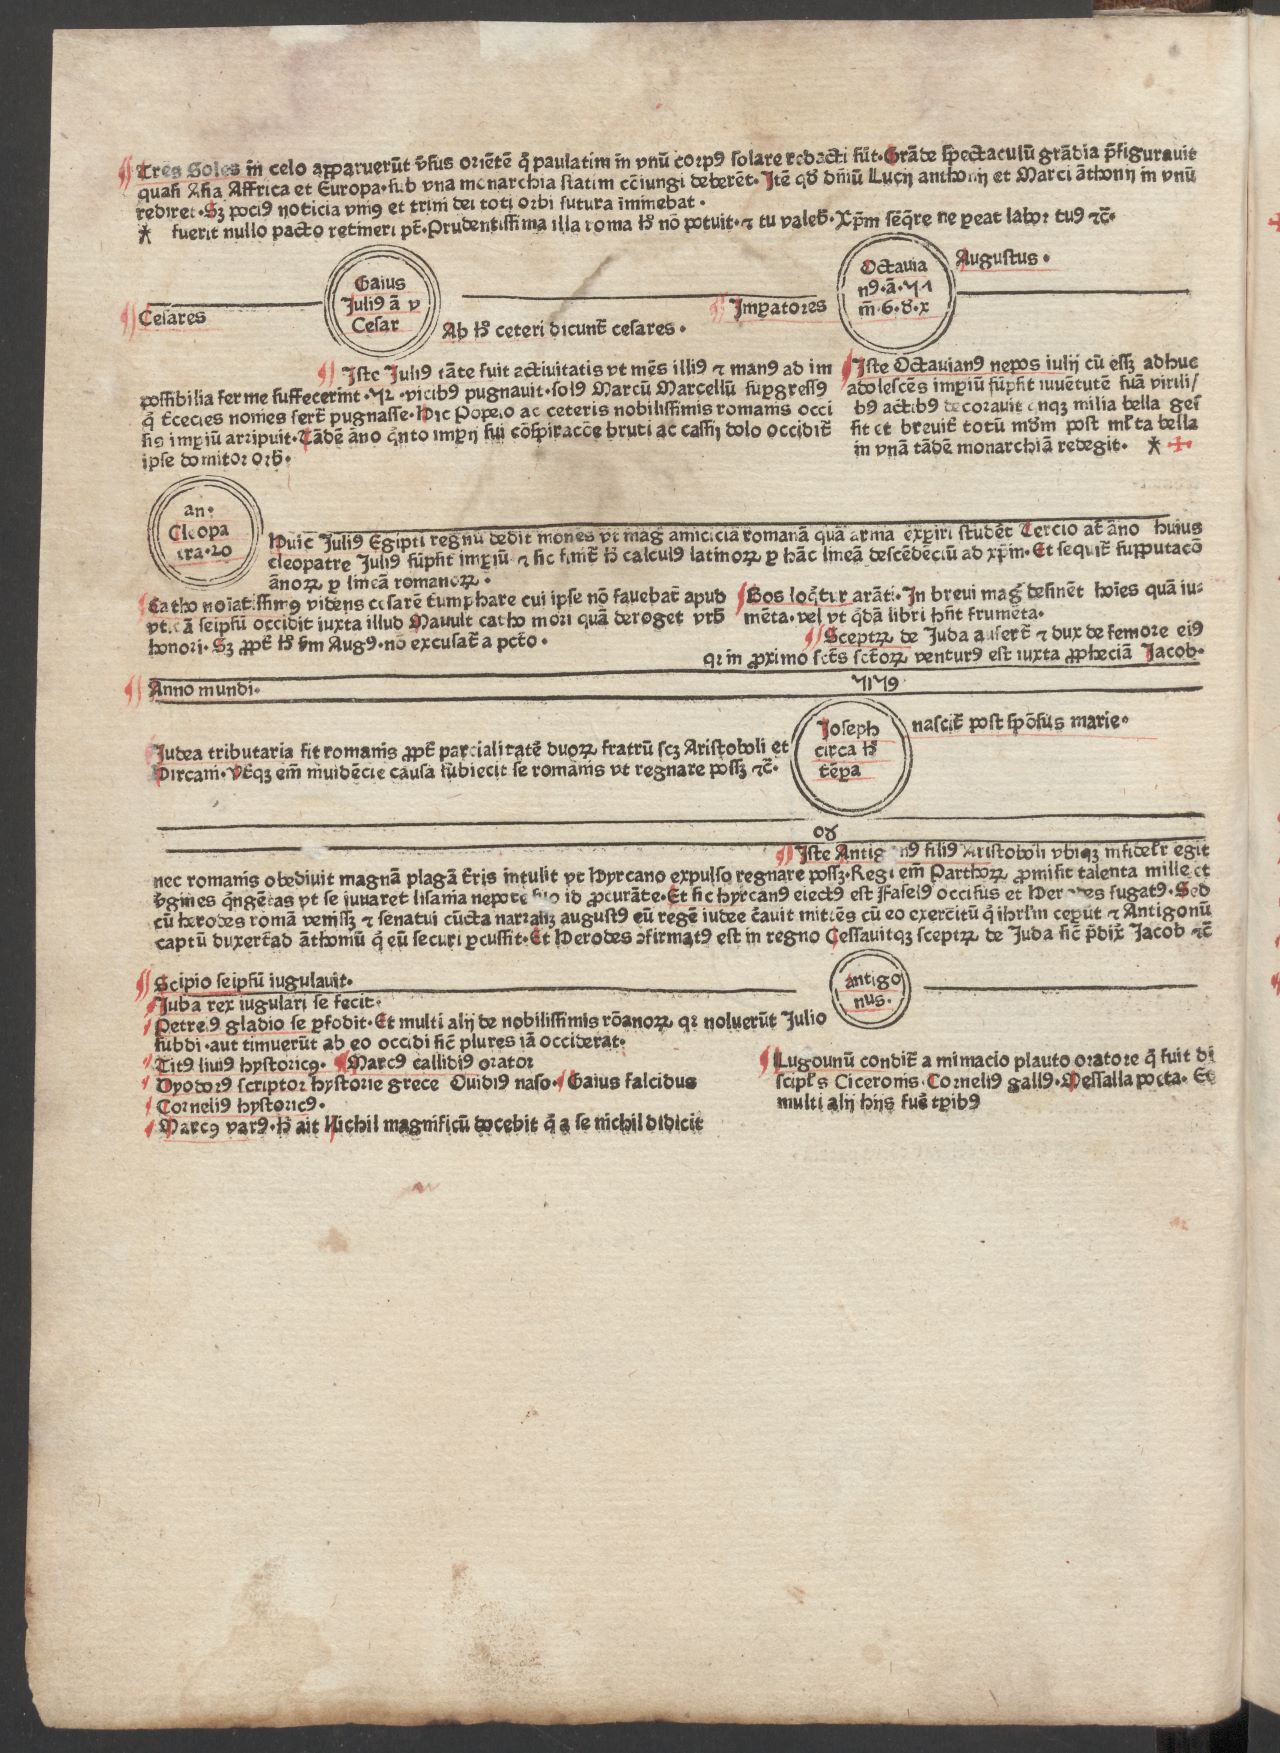 Tres Soles in celo apparuerūt v̄sus oriētē q̄ paulatim in vnū corpꝰ solare redacti sūt. Grāde spectaculū grādia p̄figurauit
quasi Asia Affrica et Europa. sub vna monarchia statim cōiungi deberēt. Itē qd̄ dn̄iū Lucij anthonij et Marci āthonij in vnū
rediret. Sꝫ pociꝰ noticia vniꝰ et trini dei toti orbi futura iminebat.
fuerit nullo pacto retineri pt̄. Prudentissima illa roma ħ nō potuit. ⁊ tu valeb̄. Xp̄m seq̄re ne ꝑeat labor tuꝰ ⁊c̄.
Gaius
Juliꝰ ā v
Cesar
Octauia
nꝰ. ā. 51
m̄. 6. 8. x
Augustus.
Cesares
Imꝑatores
Ab ħ ceteri dicunt̄ cesares.
Iste Juliꝰ tāte fuit actiuitatis vt mēs illiꝰ ⁊ manꝰ ad im
possibilia ferme suffecerint. 52. vicibꝰ pugnauit. solꝰ Marcū Marcellū suꝑgressꝰ
q̄ t̄cecies nonies fert̄ pugnasse. Hic Popeio ac ceteris nobilissimis romanis occi
sis imꝑiū arripuit. Tādē āno q̄nto imꝑij sui cōspiracōe bruti ac cassij dolo occidit̄
ipse domitor orb̄.
Iste Octauianꝰ nepos iulij cū essꝫ adhuc
adolescēs imꝑiū sūpsit iuuētutē suā virili/
bꝰ actibꝰ decorauit qnqꝫ milia bella ges
sit et breuit̄ totū mūdm̄ post ml̄ta bella
in vnā tādē monarchiā redegit.
an.
Cleopa
tra. 20
Huic Juliꝰ Egipti regnū dedit mones vt maḡ amiciciā romanā quā arma exꝑiri studēt Tercio at̄ āno huius
cleopatre Juliꝰ sūpsit imꝑiū ⁊ sic finit̄ ħ calculꝰ latinoꝝ ꝑ hāc lineā descēdēciū ad xp̄m. Et sequit̄ supputacō
ānoꝝ ꝑ lineā romanoꝝ.
Catho noīatissimꝰ videns cesarē t̄umphare cui ipse nō fauebat̄ apud
vticā seipsū occidit iuxta illud Mauult catho mori quā deroget vrb̄
honori. Sꝫ ꝓpt̄ ħ sm̄ Augꝰ. nō excusat̄ a pctō.
Bos loq̄tur arāti. In breui maḡ desinēt hoīes quā iu-
mēta. vel vt q̄dā libri hn̄t frumēta.
Sceptꝝ de Juda aufert̄ ⁊ dux de femore eiꝰ
qꝛ in ꝓximo sct̄s sct̄oꝝ venturꝰ est iuxta ꝓpheciā Jacob.
Anno mundi.
5159
Joseph
circa ħ
tēꝑa
nascit̄ post spōsus marie.
Judea tributaria fit romanis ꝓpt̄ parcialitatē duoꝝ fratrū scꝫ Aristoboli et
Hircani. Vt̄qꝫ em̄ inuidēcie causa subiecit se romanis vt regnare possꝫ ⁊c̄.
08
Iste Antigonꝰ filiꝰ Aristoboli vbiqꝫ infidelr̄ egit
nec romanis obediuit magnā plagā t̄ris intulit vt Hyrcano expulso regnare possꝫ. Regi em̄ Parthoꝝ ꝓmisit talenta mille et
v̄gines q̄ngētas vt se iuuaret lisania nepote suo id ꝓcurāte. Et sic hyrcanꝰ eiectꝰ est Faselꝰ occisus et Herodes fugatꝰ. Sed
cū herodes romā venissꝫ ⁊ senatui cūcta narrassꝫ augustꝰ eū regē iudee c̄auit mittēs cū eo exercitū q̄ ihrl̄m ceꝑūt ⁊ Antigonū
captū duxert̄ ad āthoniū q̄ eū securi ꝑcussit. Et Herodes ꝯfirmatꝰ est in regno Cessauitqꝫ sceptꝝ de Juda sic̄ p̄dix̄ Jacob ⁊c̄
Scipio seipsū iugulauit.
antigo
nus.
Juba rex iugulari se fecit.
Petreiꝰ gladio se ꝑfodit. Et multi alij de nobilissimis rōanoꝝ qꝛ noluerūt Julio
subdi. aut timuerūt ab eo occidi sic̄ plures iā occiderat.
Titꝰ liuiꝰ hystoricꝰ. Marcꝰ callidiꝰ orator
Dyodorꝰ scriptor hystorie grece Ouidiꝰ naso. Gaius falcidus
Corneliꝰ hystoricꝰ.
Marcꝰ varꝰ. ħ ait Nichil magnificū docebit q̄ a se nichil didicit
Lugdunū condit̄ a mimacio plauto oratore q̄ fuit di
scipl̄s Ciceronis. Corneliꝰ gallꝰ. Messalla poeta. Et
multi alij hijs fuē tꝑibꝰ